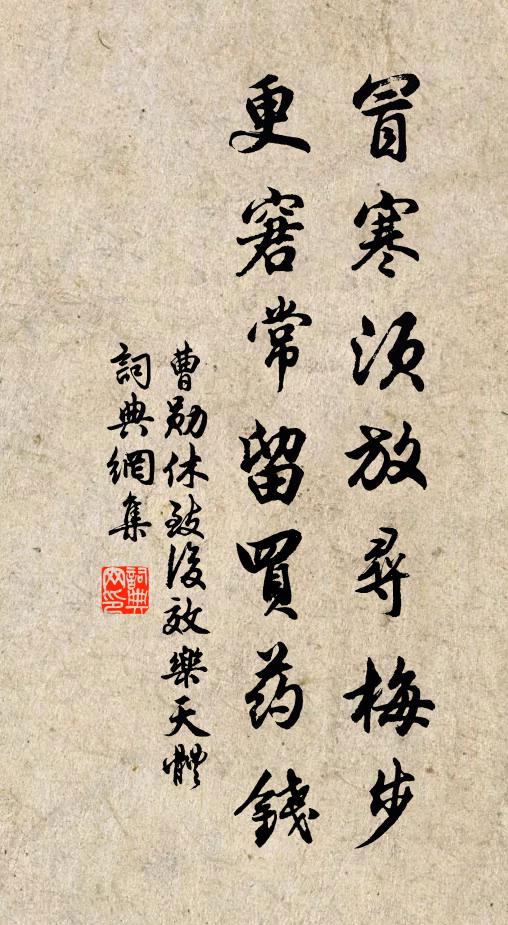 冒寒須放尋梅步
更窘常留買药錢
曹勛休致後效樂天體
詞典網集
詞典网印